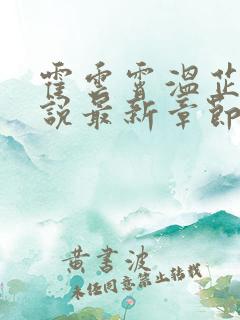 霍雲霄温芷
說最新章節
黄書波
未经同意禁止转载